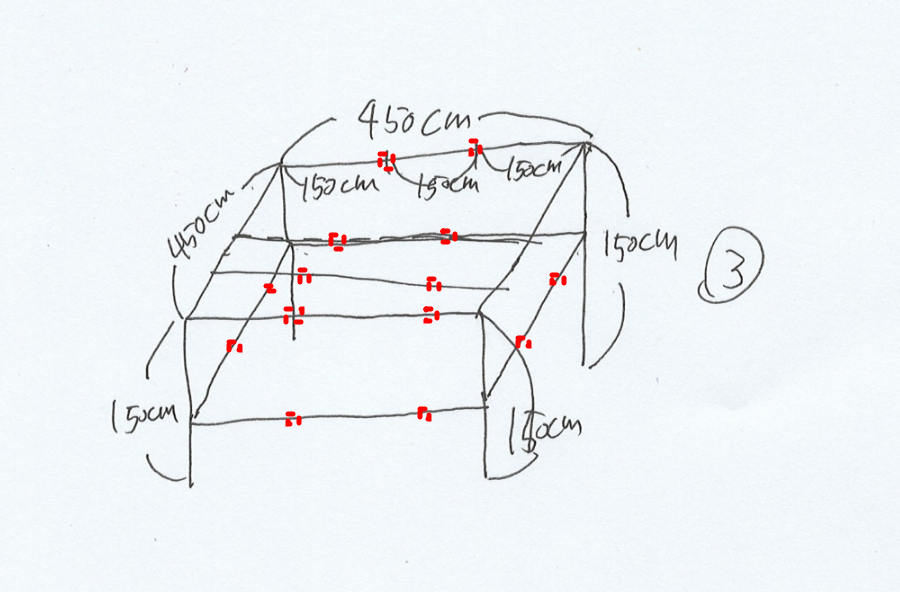 450cm
150cm
150cm
150cm
450cm
150cm
③
150cm
150cm